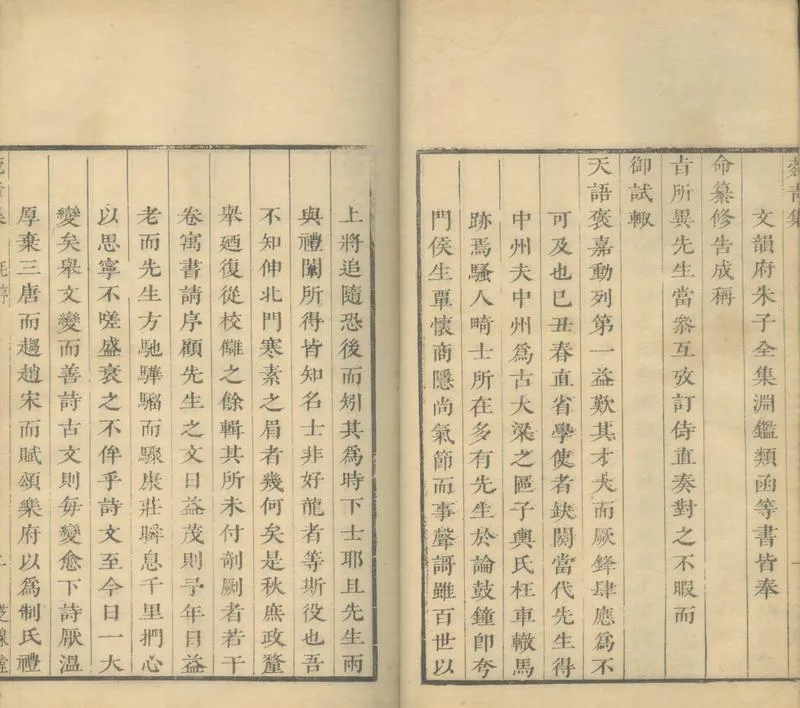 文韻府朱子全集淵鑑類函等書皆奉
命纂修告成稱
旨所異先生當叅互攷訂侍直奏對之不暇而
御試輙
天語褒嘉動列第一益歎其才大而厥鋒肆應爲不
可及也已丑春直省學使者缺闕當代先生得
中州夫中州爲古大梁之區子輿氏枉車轍馬
跡焉騷人畸士所在多有先生於論鼓鐘卽夸
門侯生覃懷商隱尚氣節而事聲謌雖百世以
上將追隨恐後而矧其爲時下士耶且先生兩
與禮闈所得皆知名士非好龍者等斯役也吾
不知伸北門寒素之眉者幾何矣是秋庶政釐
舉廼復從校讎之餘輯其所未付剞劂者若干
卷寓書請序顧先生之文日益茂則予年日益
老而先生方馳驊騮而驟康莊瞬息千里捫心
以思寧不嗟盛衰之不侔乎詩文至今日一大
變矣舉文變而善詩古文則每變愈下詩厭溫
厚棄三唐而趨趙宋而賦頌樂府以爲制氏禮